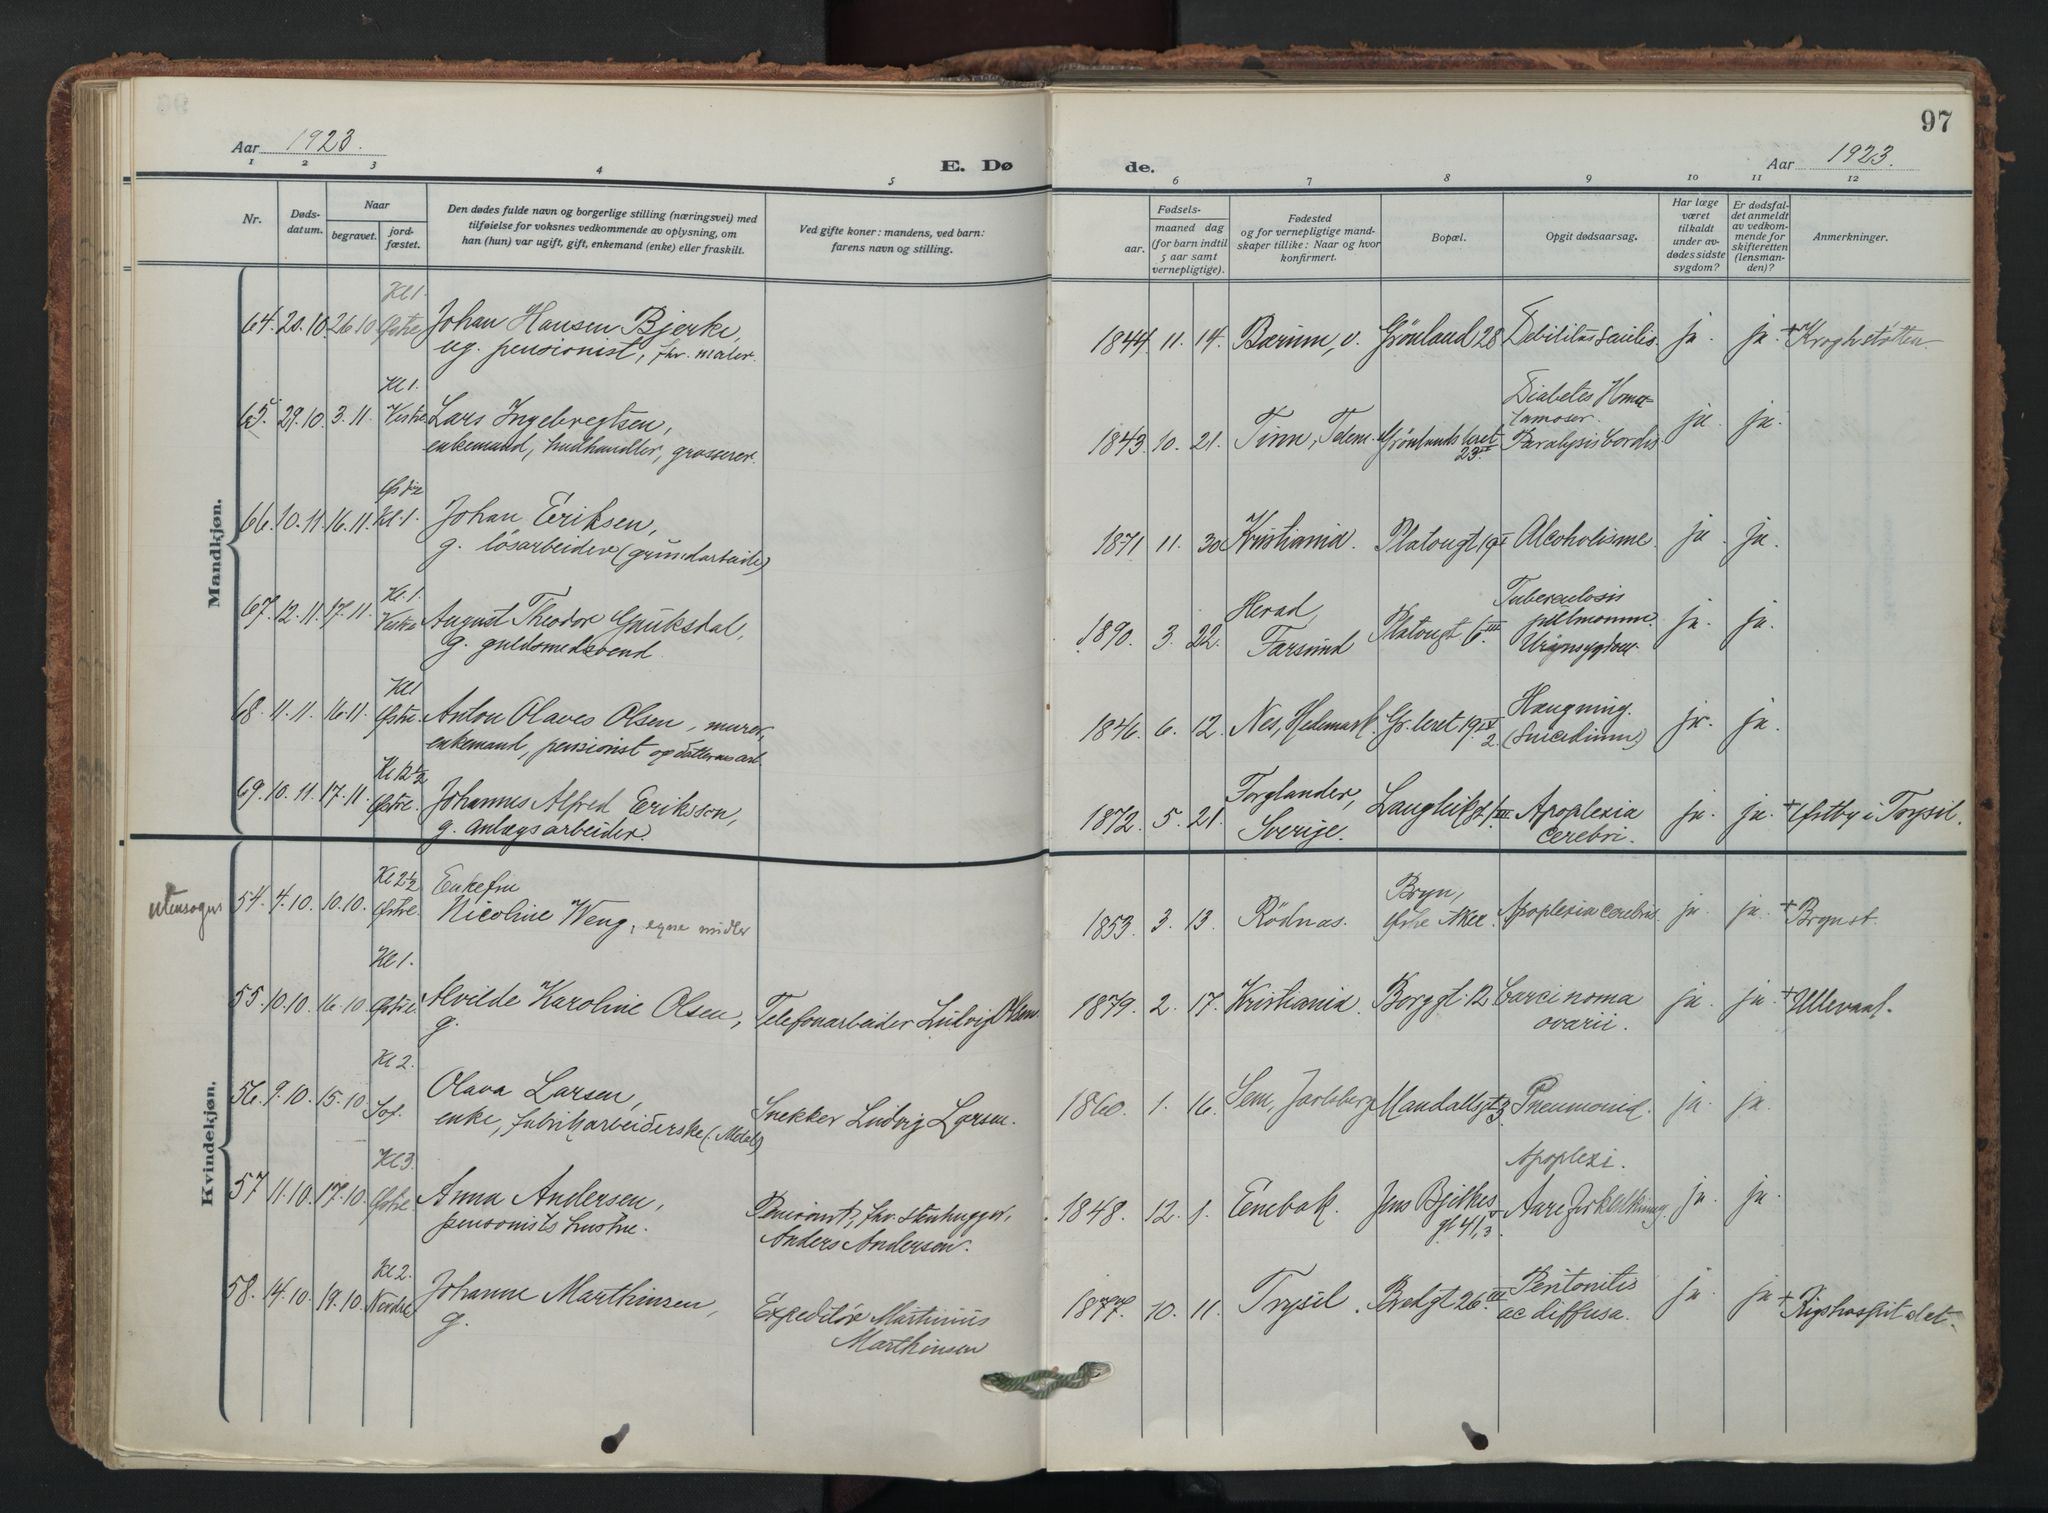 97
Aar 1923.
E. Dø
de.
Aar 1923.
1 2 3 4 5 6 7 8 9 10 11 12
Nr.
Døds-
datum.
Naar
begravet.
jord-
fæstet.
Den dødes fulde navn og borgerlige stilling (næringsvei) med
tilføielse for voksnes vedkommende av oplysning, om
han (hun) var ugift, gift, enkemand (enke) eller fraskilt.
Ved gifte koner: mandens, ved barn:
farens navn og stilling.
Fødsels-
aar.
maaned dag
(for barn indtil
5 aar samt
vernepligtige).
Fødested
og for vernepligtige mand-
skaper tillike: Naar og hvor
konfirmert.
Bopæl.
Opgit dødsaarsag.
Har læge
været
tilkaldt
under av-
dødes sidste
sygdom?
Er dødsfal-
det anmeldt
av vedkom-
mende for
skifteretten
(lensman-
den)?
Anmerkninger.
Mandkjøn.
Kl 1.
64. 20.10. 26.10 Østre Johan Hansen Bjerke,
ug. pensionist, fhv. maler.
1844. 11. 14. Bærum, v. Grønland 28 Debilitas senilis. ja. ja. + Kroghstøtten.
Kl 1.
65. 29.10. 3.11. Vestre Lars Ingebregtsen,
enkemand, hudhandler, grosserer.
1843. 10. 21. Tinn, Telem. Grønlandsleret 23 Diabetes
Paralysis cordis ja. ja.
66. 10.11. 16.11. Kl. 1. Johan Eriksen,
g. løsarbeider (grundarbeide)
1871. 11. 30 Kristiania. Platougt 19 Alcoholisme. ja. ja.
Kl. 1.
67. 12.11. 17.11. Vestre August Theodor
g. guldsmedsvend.
1890. 3. 22. Herad, Farsund Platougt 6 III Tuberculosis ja. ja.
Kl 1
68. 11.11. 16.11. Østre. Anton Olaves Olsen, murer,
enkemand, pensionist og
1846. 6. 12. Nes, Hedemark. Gr.leret 19 Hængning.
(Suicidium) ja. ja.
Kl 12½
69. 10.11. 17.11. Østre. Johannes Alfred Eriksson,
g. anlægsarbeider.
1872. 5. 21. Sverige. Apoplexia
cerebri. ja. ja. + Østby i Trysil.
Kvindekjøn.
utensogns
Kl 2½
54. 4.10. 10.10. Østre. Enkefru
Nicoline Weng, egne midler
1853. 3. 13. Rödnas. Bryn,
Østre Aker. Apoplexia cerebris. ja. ja. + Brynst.
Kl 1.
55. 10.10. 16.10. Østre. Alvilde Karoline Olsen,
g.
Telefonarbeider Ludvig Olsen.
1879. 2. 17. Kristiania. Borggt. 12 Carcinoma
ovarii. ja. ja. + Ullevaal.
Kl 2.
56. 9.10. 15.10. Sof. Olava Larsen,
enke, fabrikarbeiderske (Metal)
Snekker Ludvig Larsen.
1860. 1. 16. Sem, Jarlsberg Mandallsgt 3. Pneumonid. ja. ja.
Kl 3.
57 11.10. 17.10. Østre Anna Andersen,
pensionists hustru.
Pensionist, fhv. stenhugger,
Anders Andersen.
1848. 12. 1. Enebak. Jens Bjelkes
gt 41, 3. Apoplexi.
Aareforkalkning ja. ja.
Kl 2.
58. 14.10. 19.10. Nordre Johanne Marthinsen,
g.
Expeditør Martinius
Marthinsen
1877. 10. 11. Trysil. Bredgt 26 III Peritonitis
ac diffusa. ja. ja + Rigshospitalet.